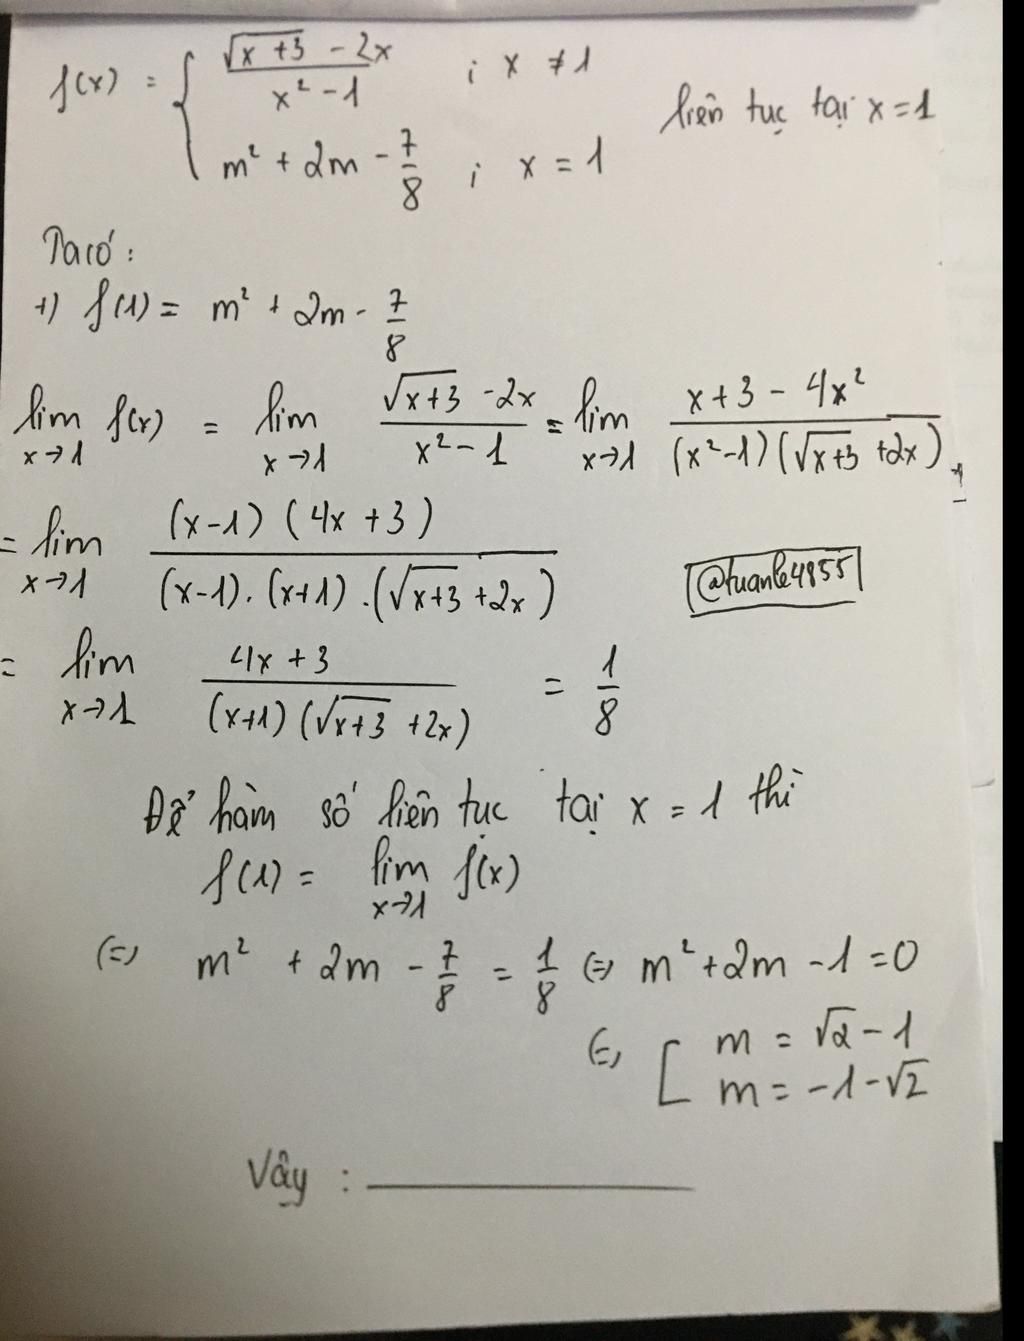 f(x) = { (√(x+3) - 2x)/(x² - 1) ; x ≠ 1
m² + 2m - 7/8 ; x = 1 liên tục tại x = 1
Ta có :
+) f(1) = m² + 2m - 7/8
lim x→1 f(x) = lim x→1 (√(x+3) - 2x)/(x² - 1) = lim x→1 (x + 3 - 4x²)/((x²-1)(√(x+3) + 2x))
= lim x→1 ((x-1)(4x+3))/((x-1).(x+1).(√(x+3) + 2x))
@tuanle4955
= lim x→1 (4x + 3)/((x+1)(√(x+3) + 2x)) = 1/8
Để hàm số liên tục tại x = 1 thì
f(1) = lim x→1 f(x)
(=) m² + 2m - 7/8 = 1/8 (=) m² + 2m - 1 = 0
(=) [ m = √2 - 1
m = -1 - √2
Vây : ______